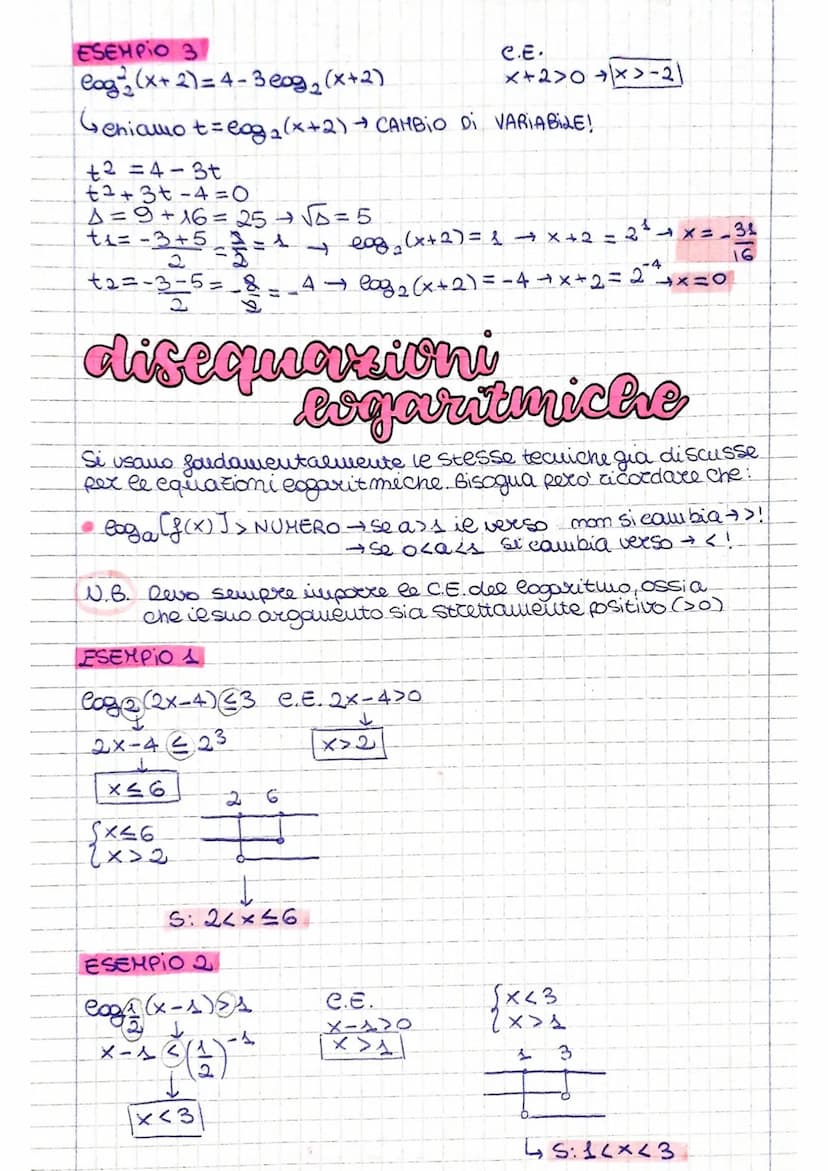 ESEMPIO 3
log₂²(x+2) = 4 - 3log₂(x+2)
C.E.
x+2>0 → x>-2
↳ chiamo t = log₂(x+2) → CAMBIO DI VARIABILE!
t² = 4 - 3t
t² + 3t - 4 = 0
Δ = 9 + 16 = 25 → √Δ = 5
t1 = (-3+5)/2 = 2/2 = 1 → log₂(x+2) = 1 → x+2 = 2¹ → x = -31/16
t2 = (-3-5)/2 = -8/2 = -4 → log₂(x+2) = -4 → x+2 = 2⁻⁴ → x=0
disequazioni
logaritmiche
Si usano fondamentalmente le stesse tecniche già discusse
per le equazioni logaritmiche. Bisogna però ricordare che:
• logₐ[f(x)] > NUMERO → se a>1 il verso non si cambia → >!
→ se 0<a<1 si cambia verso → <!
N.B. Devo sempre imporre le C.E. del logaritmo, ossia
che il suo argomento sia strettamente positivo (>0)
ESEMPIO 1
log₂(2x-4) ≤ 3 C.E. 2x-4>0
2x-4 ≤ 2³
x>2
x≤6
2 6
{x≤6
{x>2
S: 2<x≤6
ESEMPIO 2
log1/2(x-1) > 1
x-1 < (1/2)⁻¹
x<3
C.E.
x-1>0
x>1
{x<3
{x>1
1 3
↳ S: 1<x<3